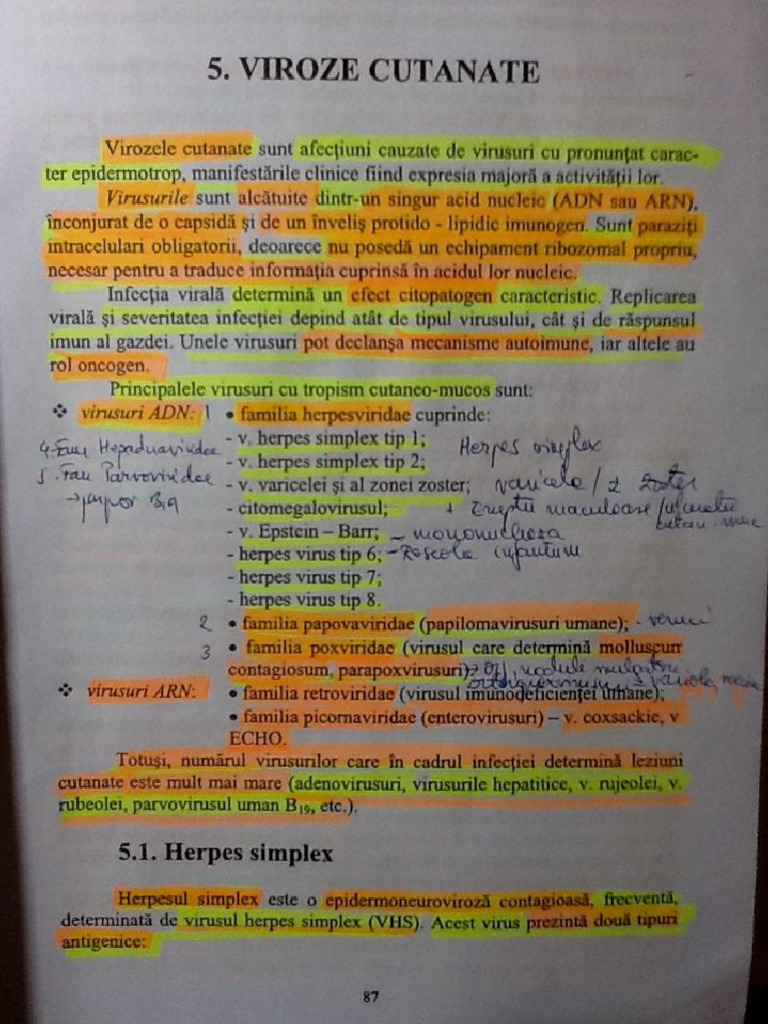 5. VIROZE CUTANATE
Virozele cutanate sunt afecțiuni cauzate de virusuri cu pronunțat carac-
ter epidermotrop, manifestările clinice fiind expresia majoră a activității lor.
Virusurile sunt alcătuite dintr-un singur acid nucleic (ADN sau ARN),
înconjurat de o capsidă și de un înveliș protido - lipidic imunogen. Sunt paraziți
intracelulari obligatorii, deoarece nu posedă un echipament ribozomal propriu,
necesar pentru a traduce informația cuprinsă în acidul lor nucleic.
Infecția virală determină un efect citopatogen caracteristic. Replicarea
virală și severitatea infecției depind atât de tipul virusului, cât și de răspunsul
imun al gazdei. Unele virusuri pot declanșa mecanisme autoimune, iar altele au
rol oncogen.
Principalele virusuri cu tropism cutaneo-mucos sunt:
❖ virusuri ADN: 1 • familia herpesviridae cuprinde:
4. Fam Hepadnaviridae - v. herpes simplex tip 1; Herpes simplex
- v. herpes simplex tip 2;
5. Fam Parvoviridae - v. varicelei și al zonei zoster; varicela / z zoster
- citomegalovirusul; maculoase
B19 - v. Epstein – Barr; - mononucleoza
- herpes virus tip 6; - Roseola infantum
- herpes virus tip 7;
- herpes virus tip 8.
2 • familia papovaviridae (papilomavirusuri umane); - veruci
3 • familia poxviridae (virusul care determină molluscum
contagiosum, parapoxvirusuri) nodulii mulgătorilor
variola
❖ virusuri ARN: • familia retroviridae (virusul imunodeficienței umane);
• familia picornaviridae (enterovirusuri) – v. coxsackie, v
ECHO.
Totuși, numărul virusurilor care în cadrul infecției determină leziuni
cutanate este mult mai mare (adenovirusuri, virusurile hepatitice, v. rujeolei, v.
rubeolei, parvovirusul uman B19, etc.).
5.1. Herpes simplex
Herpesul simplex este o epidermoneuroviroză contagioasă, frecventă,
determinată de virusul herpes simplex (VHS). Acest virus prezintă două tipuri
antigenice:
87